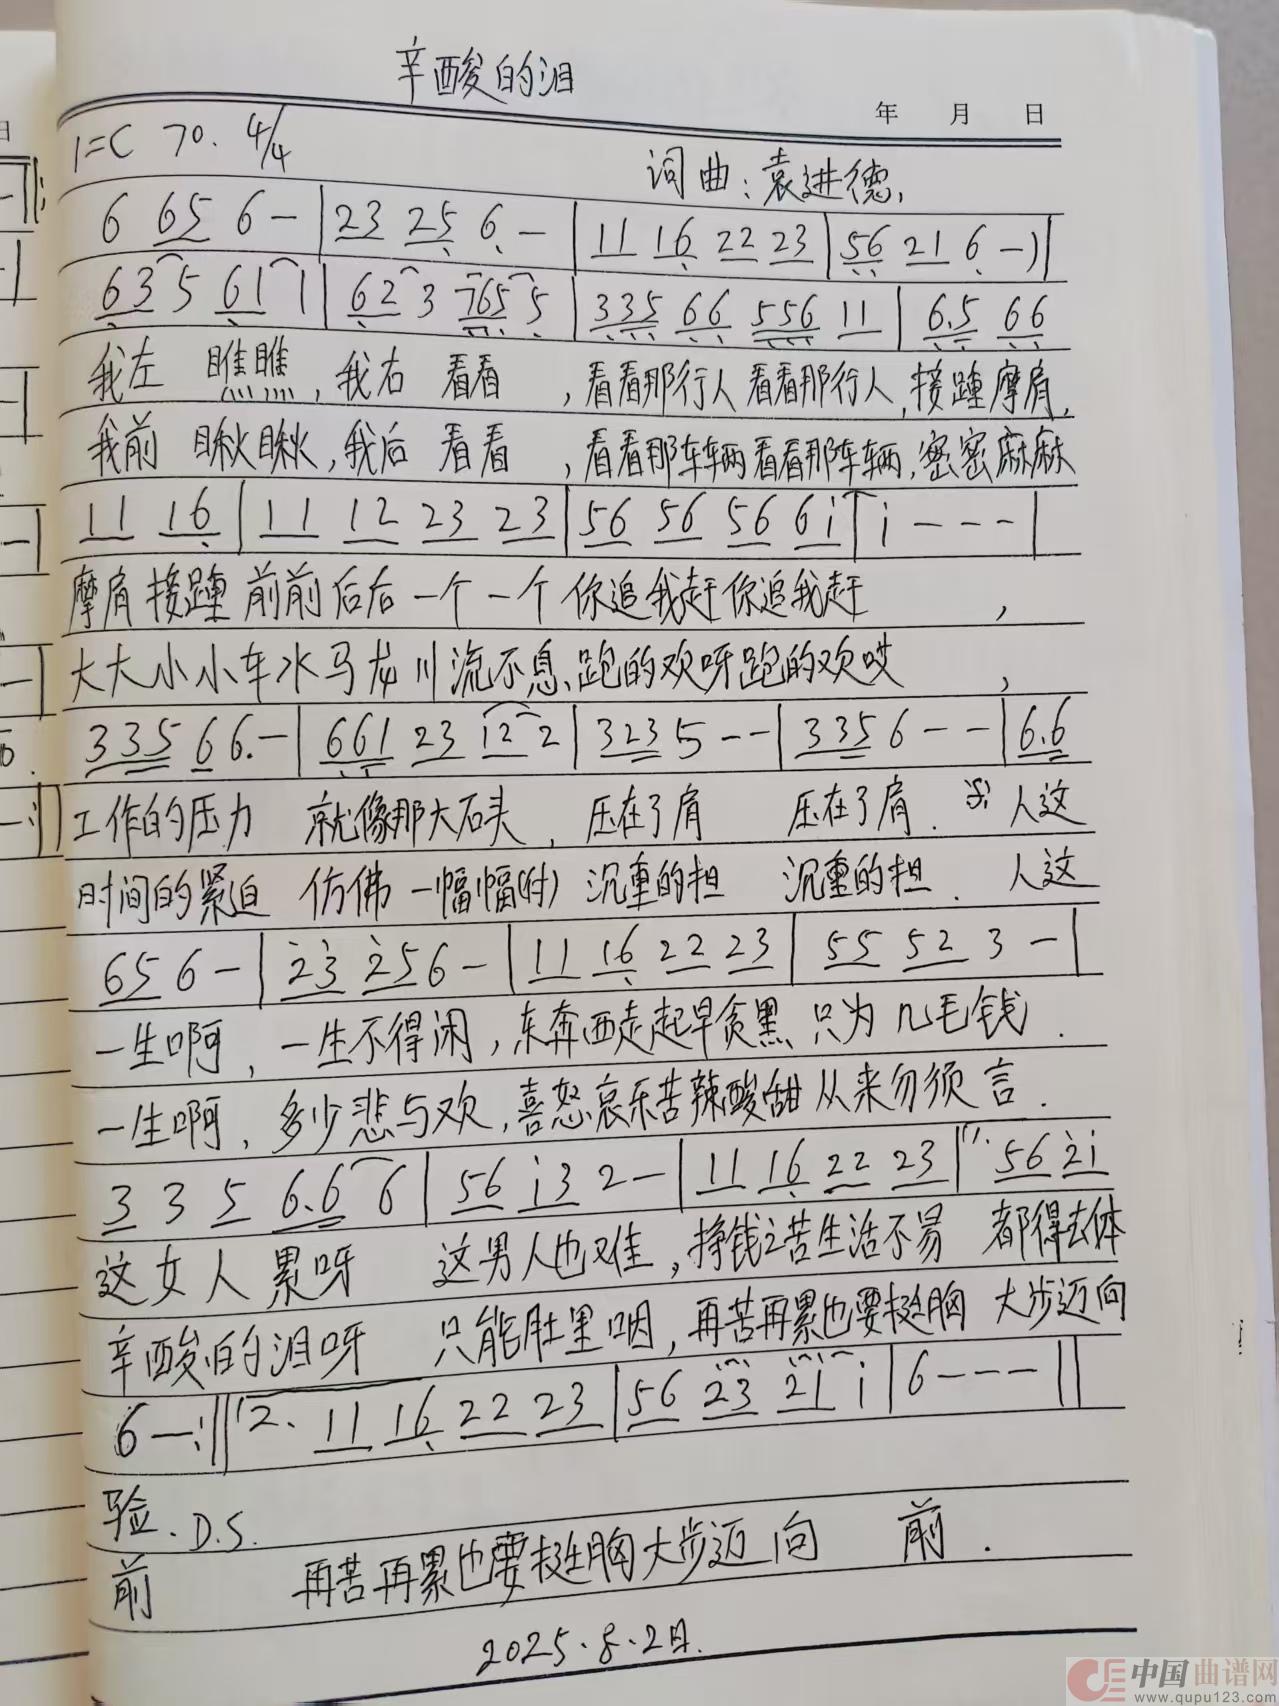 辛酸的泪
年 月 日
1=C 70. 4/4
词曲:袁进德,
6 65 6 - | 23 25 6 - | 11 16 22 23 | 56 21 6 -) |
63 5 61 1 | 62 3 765 5 | 335 66 556 11 | 6.5 66
我左 瞧瞧,我右 看看 ,看看那行人看看那行人,接踵摩肩,
我前 瞅瞅,我后 看看 ,看看那车辆看看那车辆,密密麻麻
11 16 | 11 12 23 23 | 56 56 56 6i | i - - - |
摩肩接踵前前后后一个一个你追我赶你追我赶 ,
大大小小车水马龙川流不息、跑的欢呀跑的欢哎 ,
335 66. - | 661 23 i2 2 | 323 5 - - | 335 6 - - | 6.6
工作的压力 就像那大石头,压在了肩 压在了肩. 人这
时间的紧迫 仿佛一幅幅(付) 沉重的担 沉重的担. 人这
65 6 - | 23 25 6 - | 11 16 22 23 | 55 52 3 - |
一生啊,一生不得闲,东奔西走起早贪黑 只为几毛钱.
一生啊,多少悲与欢,喜怒哀乐苦辣酸甜从来勿须言.
3 3 5 6.6 6 | 56 i3 2 - | 11 16 22 23 | 1. 56 2i
这女人累呀 这男人也难,挣钱之苦生活不易 都得去体
辛酸的泪呀 只能肚里咽,再苦再累也要挺胸 大步迈向
6 - :|| 2. 11 16 22 23 | 56 23 21 i | 6 - - - ||
验. D.S.
前 再苦再累也要挺胸大步迈向 前.
2025.8.2日.
中国曲谱网
www.qupu123.com